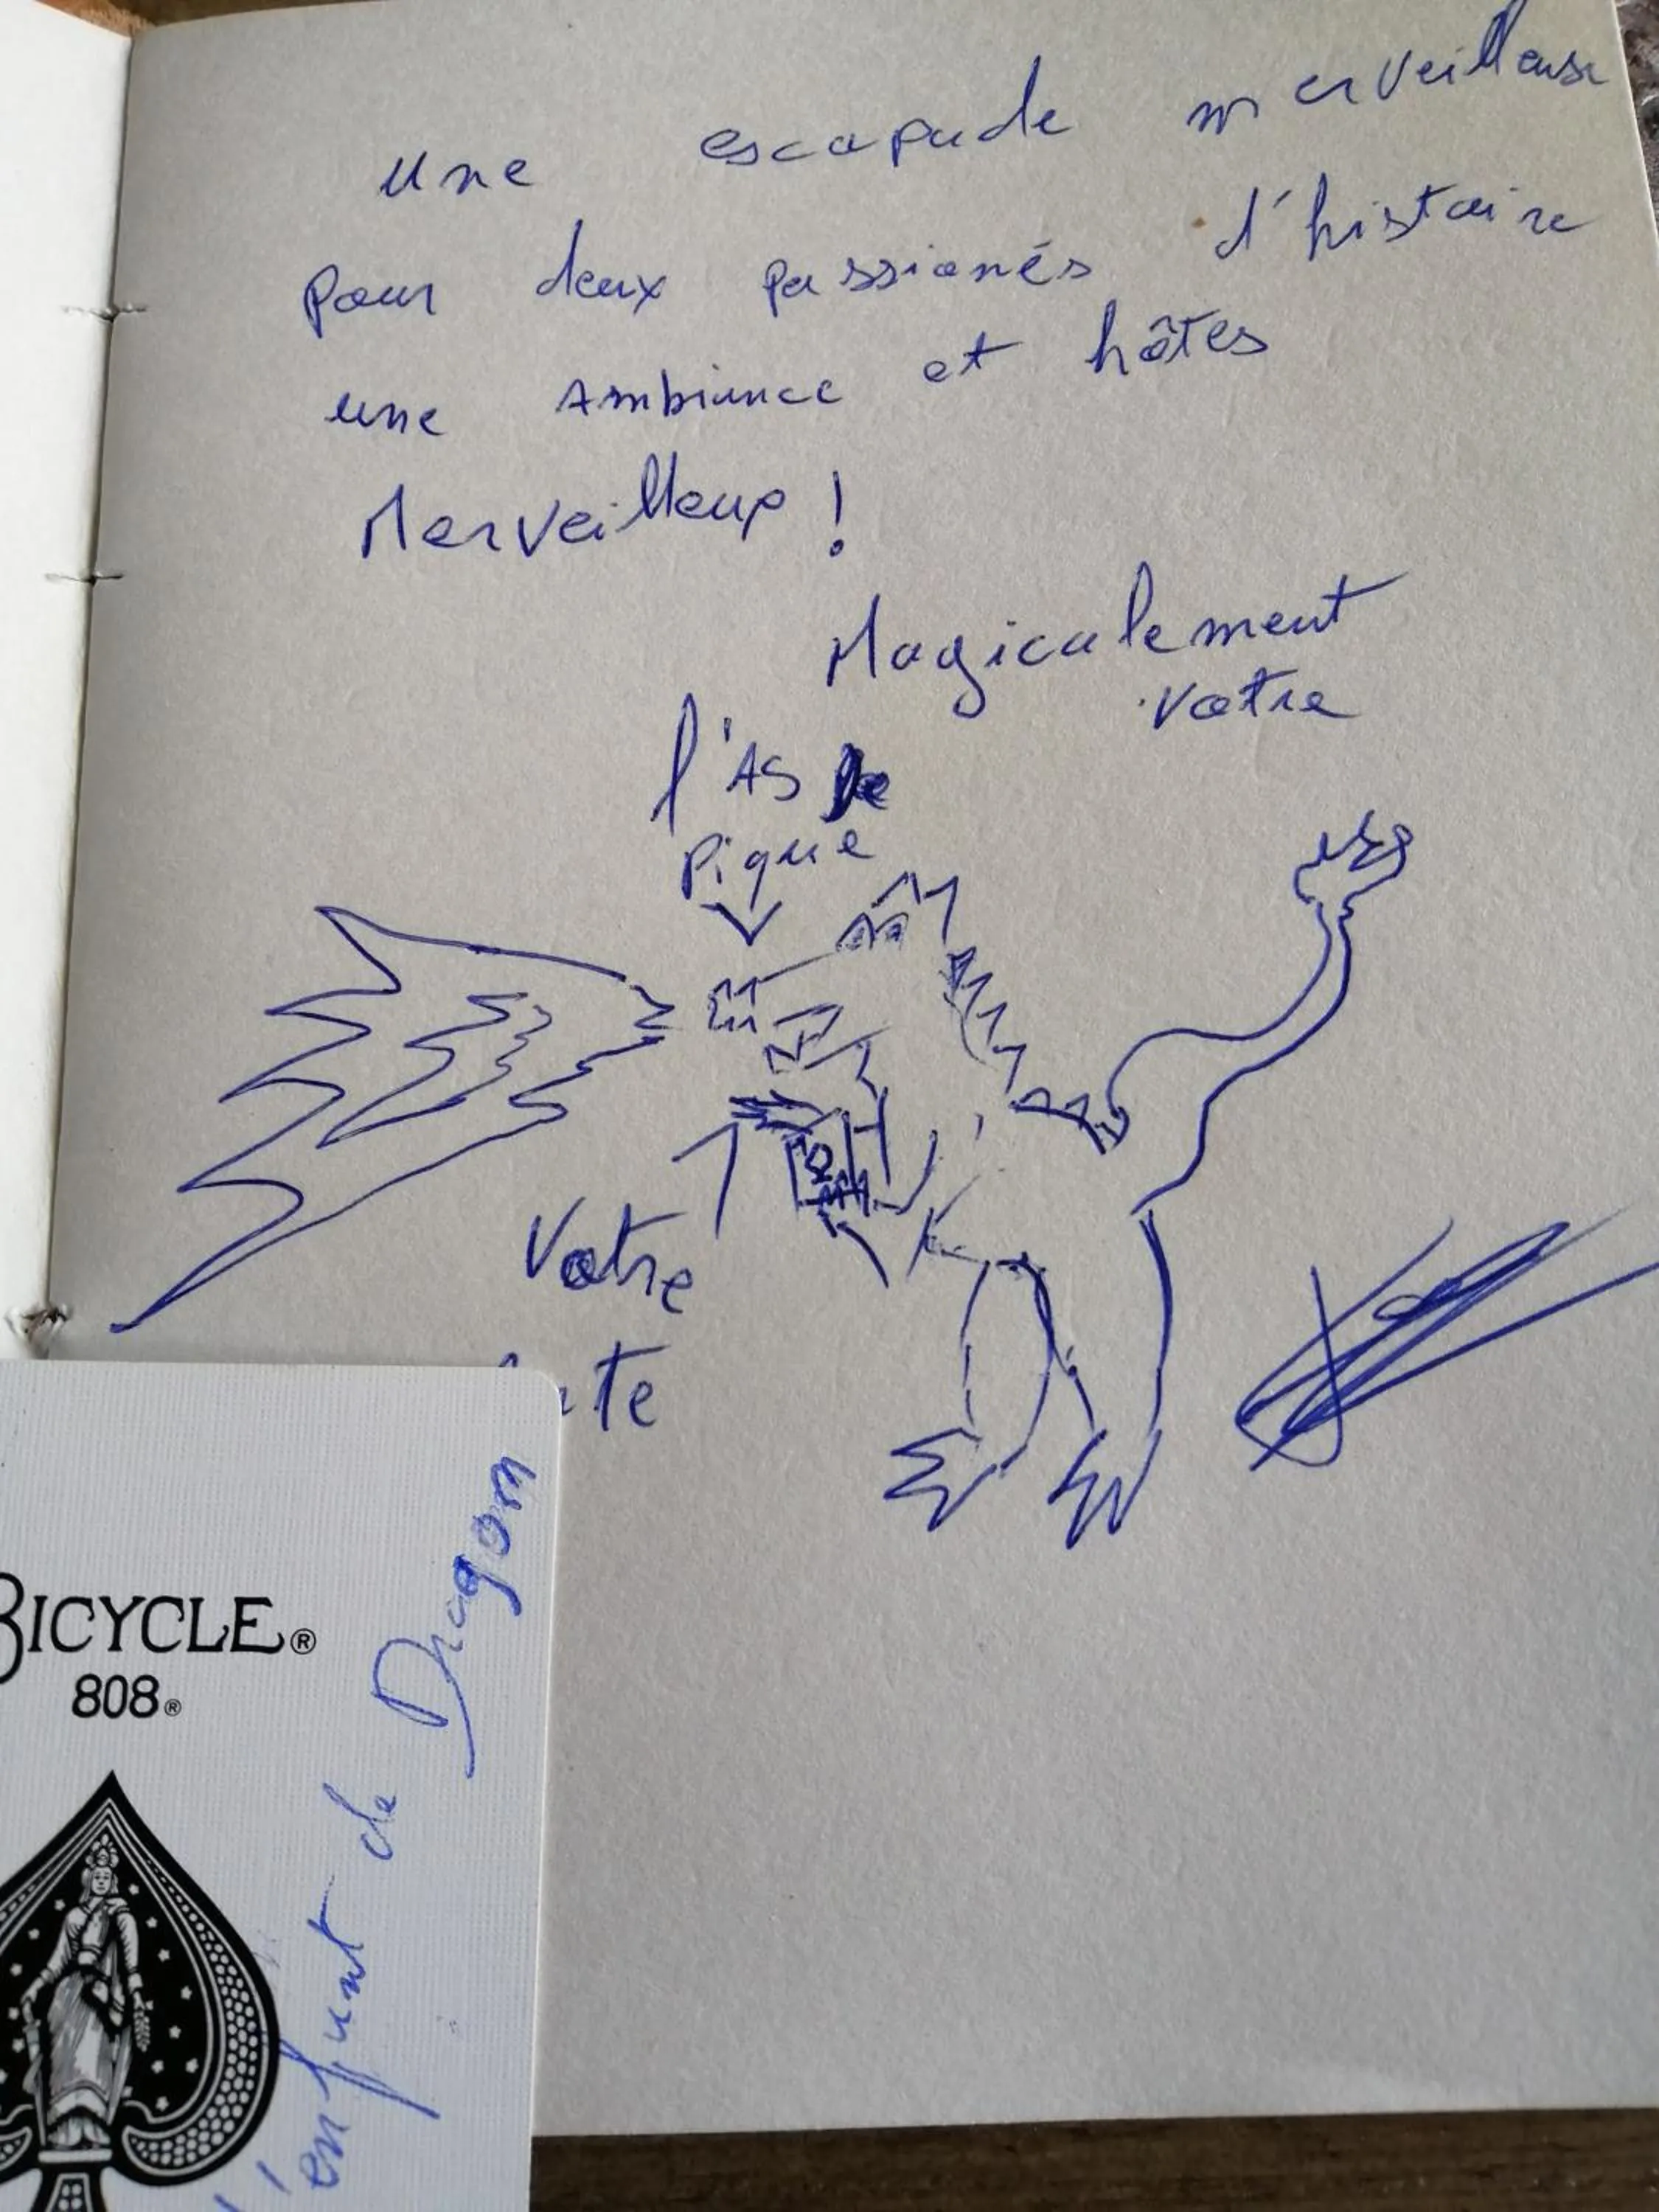 une escapade merveilleuse
pour deux passionés d'histoire
une Ambiance et hôtes
Merveilleux !
Magicalement
votre
l'AS De
pique
Votre
BICYCLE®
808®
l'enfant de Dragon